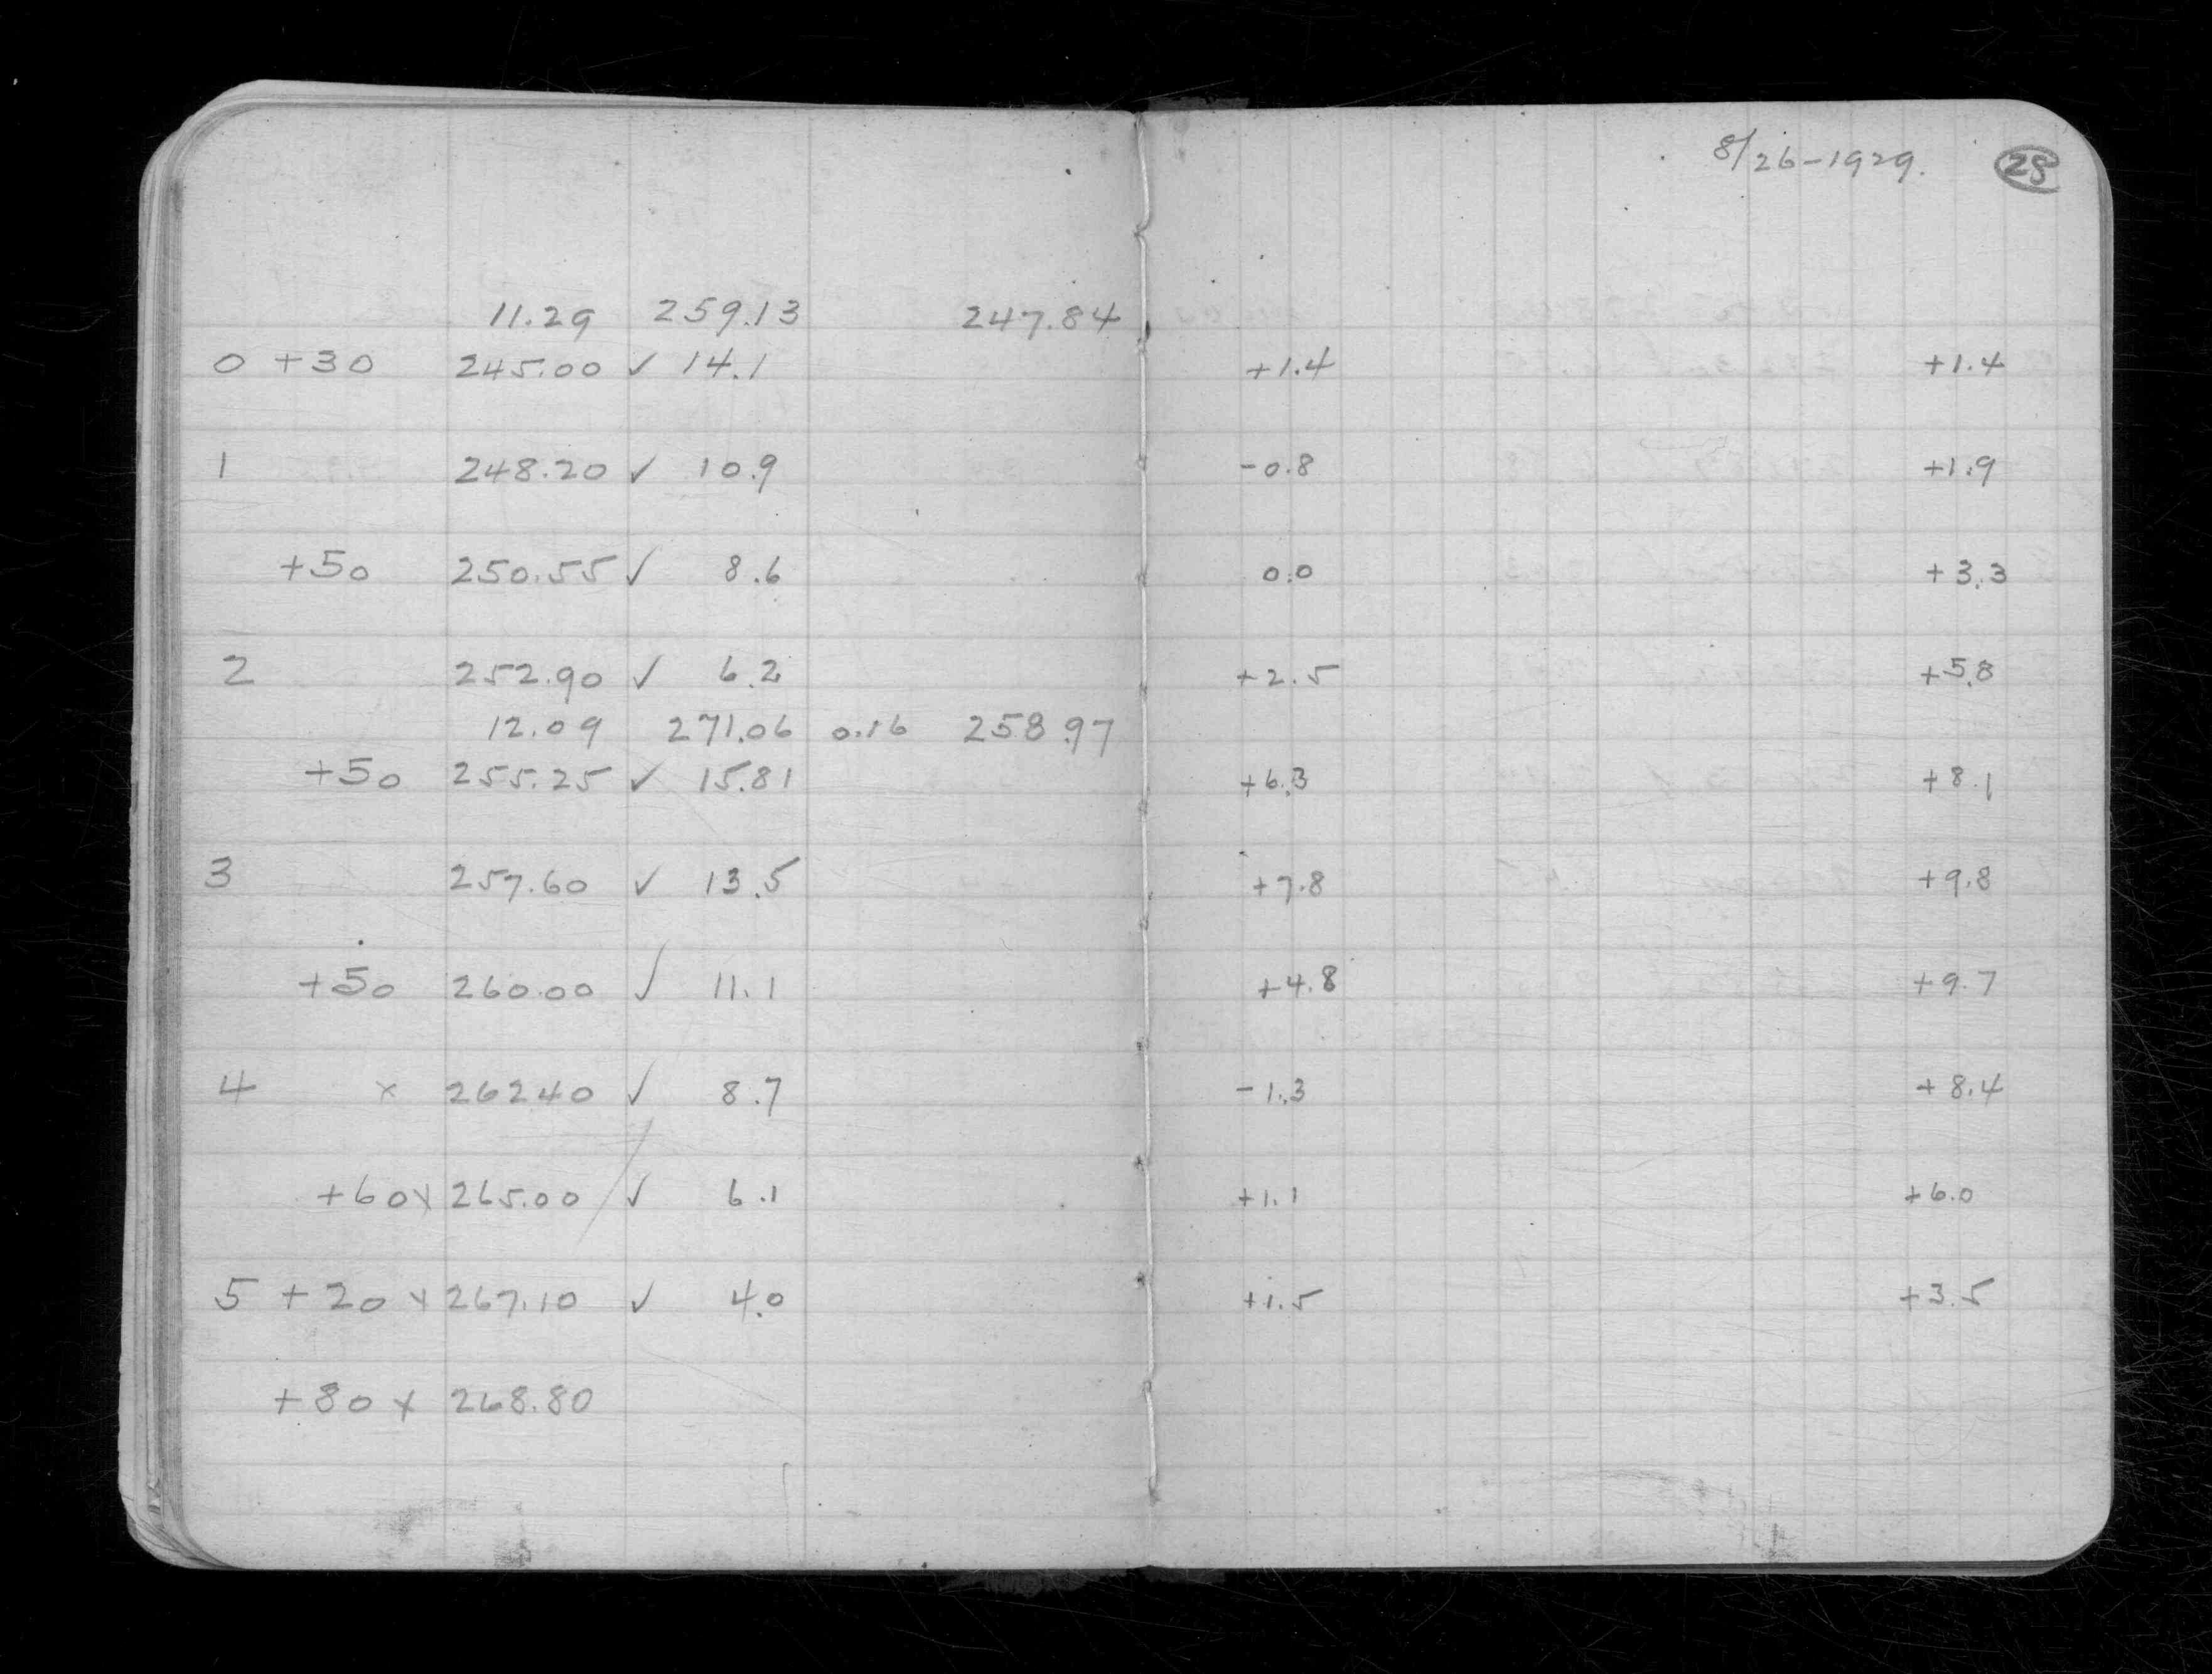 8/26-1929. 28
11.29 259.13 247.84
0 +30 245.00 ✓ 14.1 +1.4 +1.4
1 248.20 ✓ 10.9 -0.8 +1.9
+50 250.55 ✓ 8.6 0.0 +3.3
2 252.90 ✓ 6.2 +2.5 +5.8
12.09 271.06 0.16 258.97
+50 255.25 ✓ 15.81 +6.3 +8.1
3 257.60 ✓ 13.5 +7.8 +9.8
+50 260.00 ✓ 11.1 +4.8 +9.7
4 x 26240 ✓ 8.7 -1.3 +8.4
+60 x 265.00 ✓ 6.1 +1.1 +6.0
5 +20 x 267.10 ✓ 4.0 +1.5 +3.5
+80 x 268.80